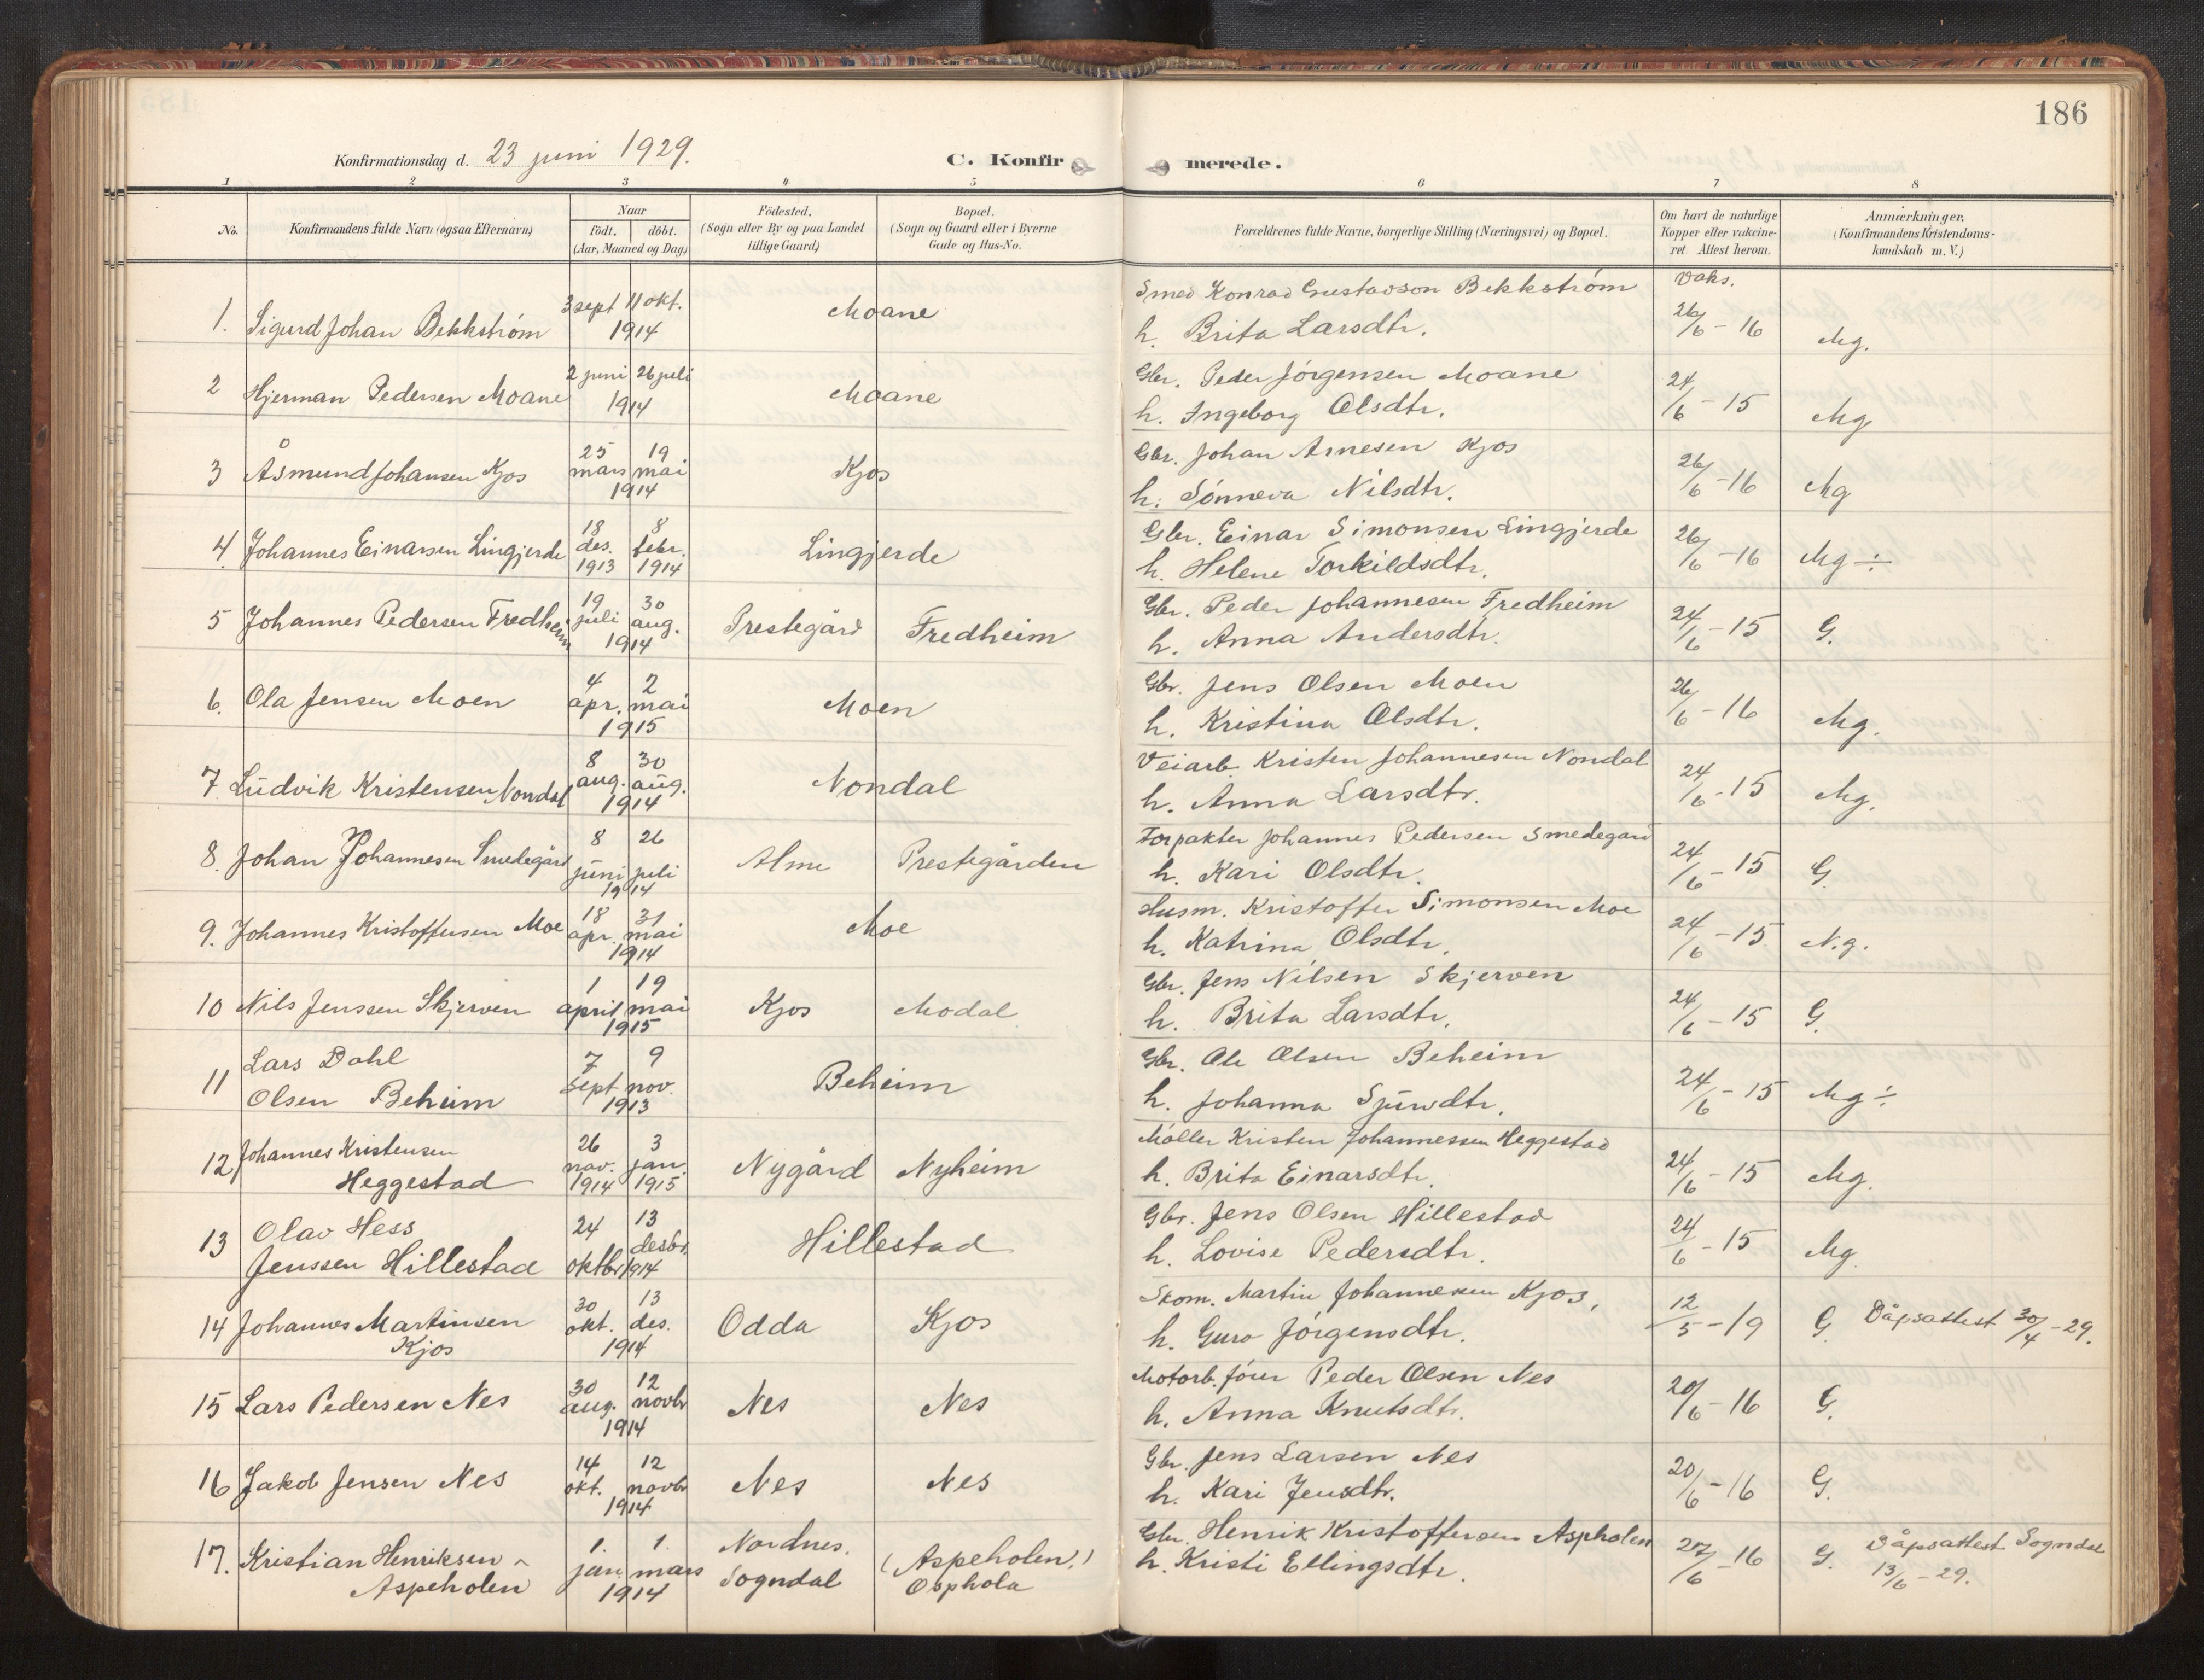 186
Konfirmationsdag d. 23 juni 1929. C. Konfirmerede.
1 2 3 4 5 6 7 8
No. Konfirmandens fulde Navn (ogsaa Efternavn) Naar födt. döbt. (Aar, Maaned og Dag) Födested. (Sogn eller By og paa Landet tillige Gaard) Bopæl. (Sogn og Gaard eller i Byerne Gade og Hus-No. Forældrenes fulde Navne, borgerlige Stilling (Næringsvei) og Bopæl. Om havt de naturlige Kopper eller vakcineret. Attest herom. Anmærkninger, (Konfirmandens Kristendomskundskab m. V.)
1. Sigurd Johan Bekkström 3 sept 11 okt. 1914 Moane Smed Konrad Gustavson Bekkström h. Brita Larsdtr. Vaks. 26/6 - 16 Mg.
2 Hjerman Pedersen Moane 2 juni 26 juli 1914 Moane Gbr. Peder Jörgensen Moane h. Ingeborg Olsdtr. 24/6 - 15 Mg
3 Åsmund Johansen Kjos 25 mars 19 mai 1914 Kjos Gbr. Johan Arnesen Kjos h. Sönneva Nilsdtr. 26/6 - 16 Mg
4. Johannes Einarsen Lingjerde 18 des. 1913 8 febr. 1914 Lingjerde Gbr. Einar Simonsen Lingjerde h. Helene Torkildsdtr. 26/6 - 16 Mg ÷
5 Johannes Pedersen Fredheim 19 juli 30 aug. 1914 Prestegård Fredheim Gbr. Peder Johannesen Fredheim h. Anna Andersdtr. 24/6 - 15 G.
6. Ola Jensen Moen 4 apr. 2 mai 1915 Moen Gbr. Jens Olsen Moen h. Kristina Olsdtr. 26/6 - 16 Mg.
7 Ludvik Kristensen Nondal 8 aug. 30 aug. 1914 Nondal Veiarb. Kristen Johannesen Nondal h. Anna Larsdtr. 24/6 - 15 Mg.
8. Johan Johannesen Smedegård 8 juni 26 juli 1914 Alme Prestegården Forpakter Johannes Pedersen Smedegard h. Kari Olsdtr. 24/6 - 15 G
9. Johannes Kristoffersen Moe 18 apr. 31 mai 1914 Moe Husm. Kristoffer Simonsen Moe h. Katrina Olsdtr. 24/6 - 15 N.g.
10 Nils Jenssen Skjerven 1 april 19 mai 1915 Kjos Modal Gbr. Jens Nilsen Skjerven h. Brita Larsdtr. 24/6 - 15 G.
11 Lars Dahl Olsen Beheim 7 sept 9 nov. 1913 Beheim Gbr. Ole Olsen Beheim h. Johanna Sjurdtr. 24/6 - 15 Mg ÷
12 Johannes Kristensen Heggestad 26 nov. 1914 3 jan. 1915 Nygård Nyheim Möller Kristen Johannessen Heggestad h. Brita Einarsdtr. 24/6 - 15 Mg.
13 Olav Hess Jenssen Hillestad 24 oktbr 13 desbr. 1914 Hillestad Gbr. Jens Olsen Hillestad h. Lovise Pedersdtr. 24/6 - 15 Mg
14 Johannes Martinsen Kjos 30 okt. 13 des. 1914 Odda Kjos Skom. Martin Johannesen Kjos, h. Guro Jörgensdtr. 12/5 - 19 G. Dåpsattest 30/4 - 29.
15 Lars Pedersen Nes 30 aug. 12 novbr 1914 Nes Nes Motorb. förer Peder Olsen Nes h. Anna Knutsdtr. 20/6 - 16 G.
16 Jakob Jensen Nes 14 okt. 12 novbr 1914 Nes Nes Gbr. Jens Larsen Nes h. Kari Jensdtr. 20/6 - 16 G.
17. Kristian Henriksen Aspeholen 1. jan 1 mars 1914 Nordnes. Sogndal (Aspeholen.) Osphola Gbr. Henrik Kristoffersen Aspholen h. Kristi Ellingsdtr. 27/6 - 16 G. Dåpsattest Sogndal 13/6 - 29.